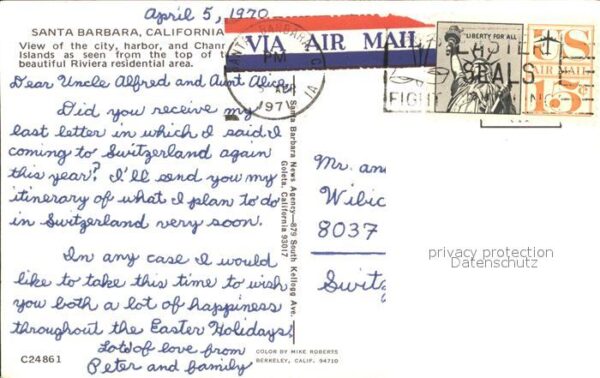 April 5, 1970
SANTA BARBARA, CALIFORNIA
View of the city, harbor, and Chann
Islands as seen from the top of t
beautiful Riviera residential area.
Dear Uncle Alfred and Aunt Alice,
Did you receive my
last letter in which I said I
coming to Switzerland again
this year? I'll send you my
itinerary of what I plan to do
in Switzerland very soon.
In any case I would
like to take this time to wish
you both a lot of happiness
throughout the Easter Holidays!
Lots of love from
Peter and family
C24861
VIA AIR MAIL
SANTA BARBARA, CA
PM
5 APR
197
LIBERTY FOR ALL
US
AIR MAIL
15c
EASTER
SEALS
FIGHT
Santa Barbara News Agency—879 South Kellogg Ave.
Goleta, California 93017
Mr. an
Wibic
8037
Switz
privacy protection
Datenschutz
COLOR BY MIKE ROBERTS
BERKELEY, CALIF. 94710